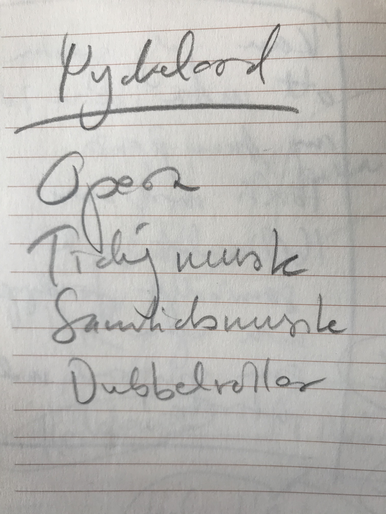 Nyckelord
Opera
Tidig musik
Samtidsmusik
Dubbelroller